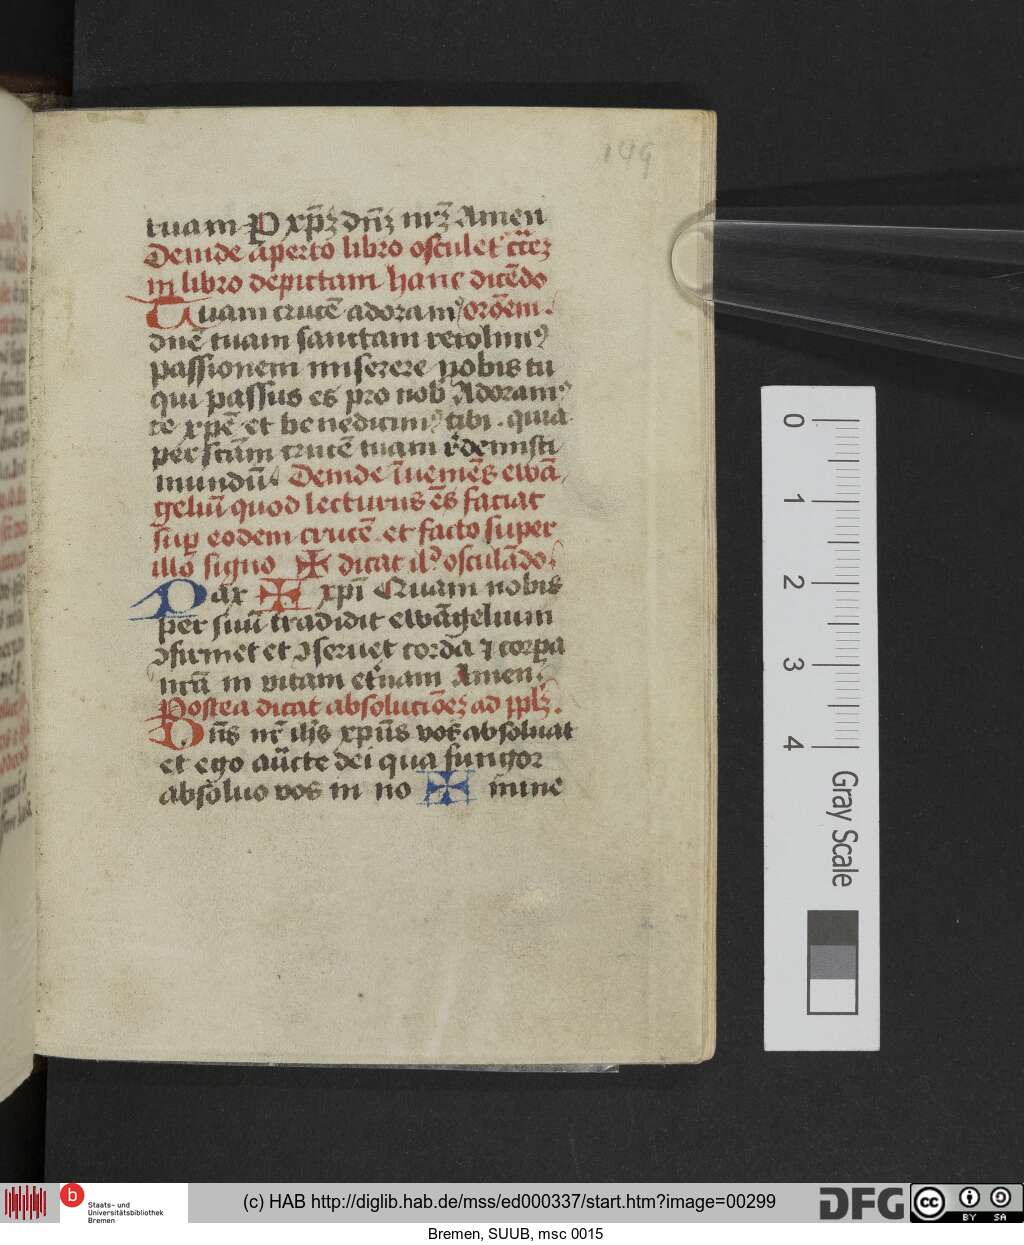 149
tuam P xp̄ꝫ dn̄ꝫ nr̄ꝫ Amen
Deinde aperto libro osculet' cͨeꝫ
in libro depictam hanc dicēdo
Tuam crucē adoramꝰ orōem.
dn̄e tuam sanctam recolimꝰ
passionem miserere nobis tu
qui passus es pro nob Adoramꝰ
te xp̄e et benedicimꝰ tibi. quia
per scām crucē tuam redemisti
mundū. Deinde
geliū quod lecturus ēs faciat
suꝑ eodem crucē et facto super
illo signo ✠ dicat osculādo.
Pax ✠ xp̄i Quam nobis
per suū tradidit ewāgelium
ꝯfirmet et ꝯseruet corda ⁊ corpa
nr̄a in vitam et'nam Amen.
Postea dicat absolutiōeꝫ ad pplꝫ.
Dn̄s nr̄ ih̄s xp̄us vos absoluat
et ego aūcte dei qua fungor
absoluo vos in no ✠ mine
0
1
2
3
4
Gray Scale
b
Staats- und
Universitätsbibliothek
Bremen
(c) HAB http://diglib.hab.de/mss/ed000337/start.htm?image=00299
DFG
cc
BY SA
Bremen, SUUB, msc 0015